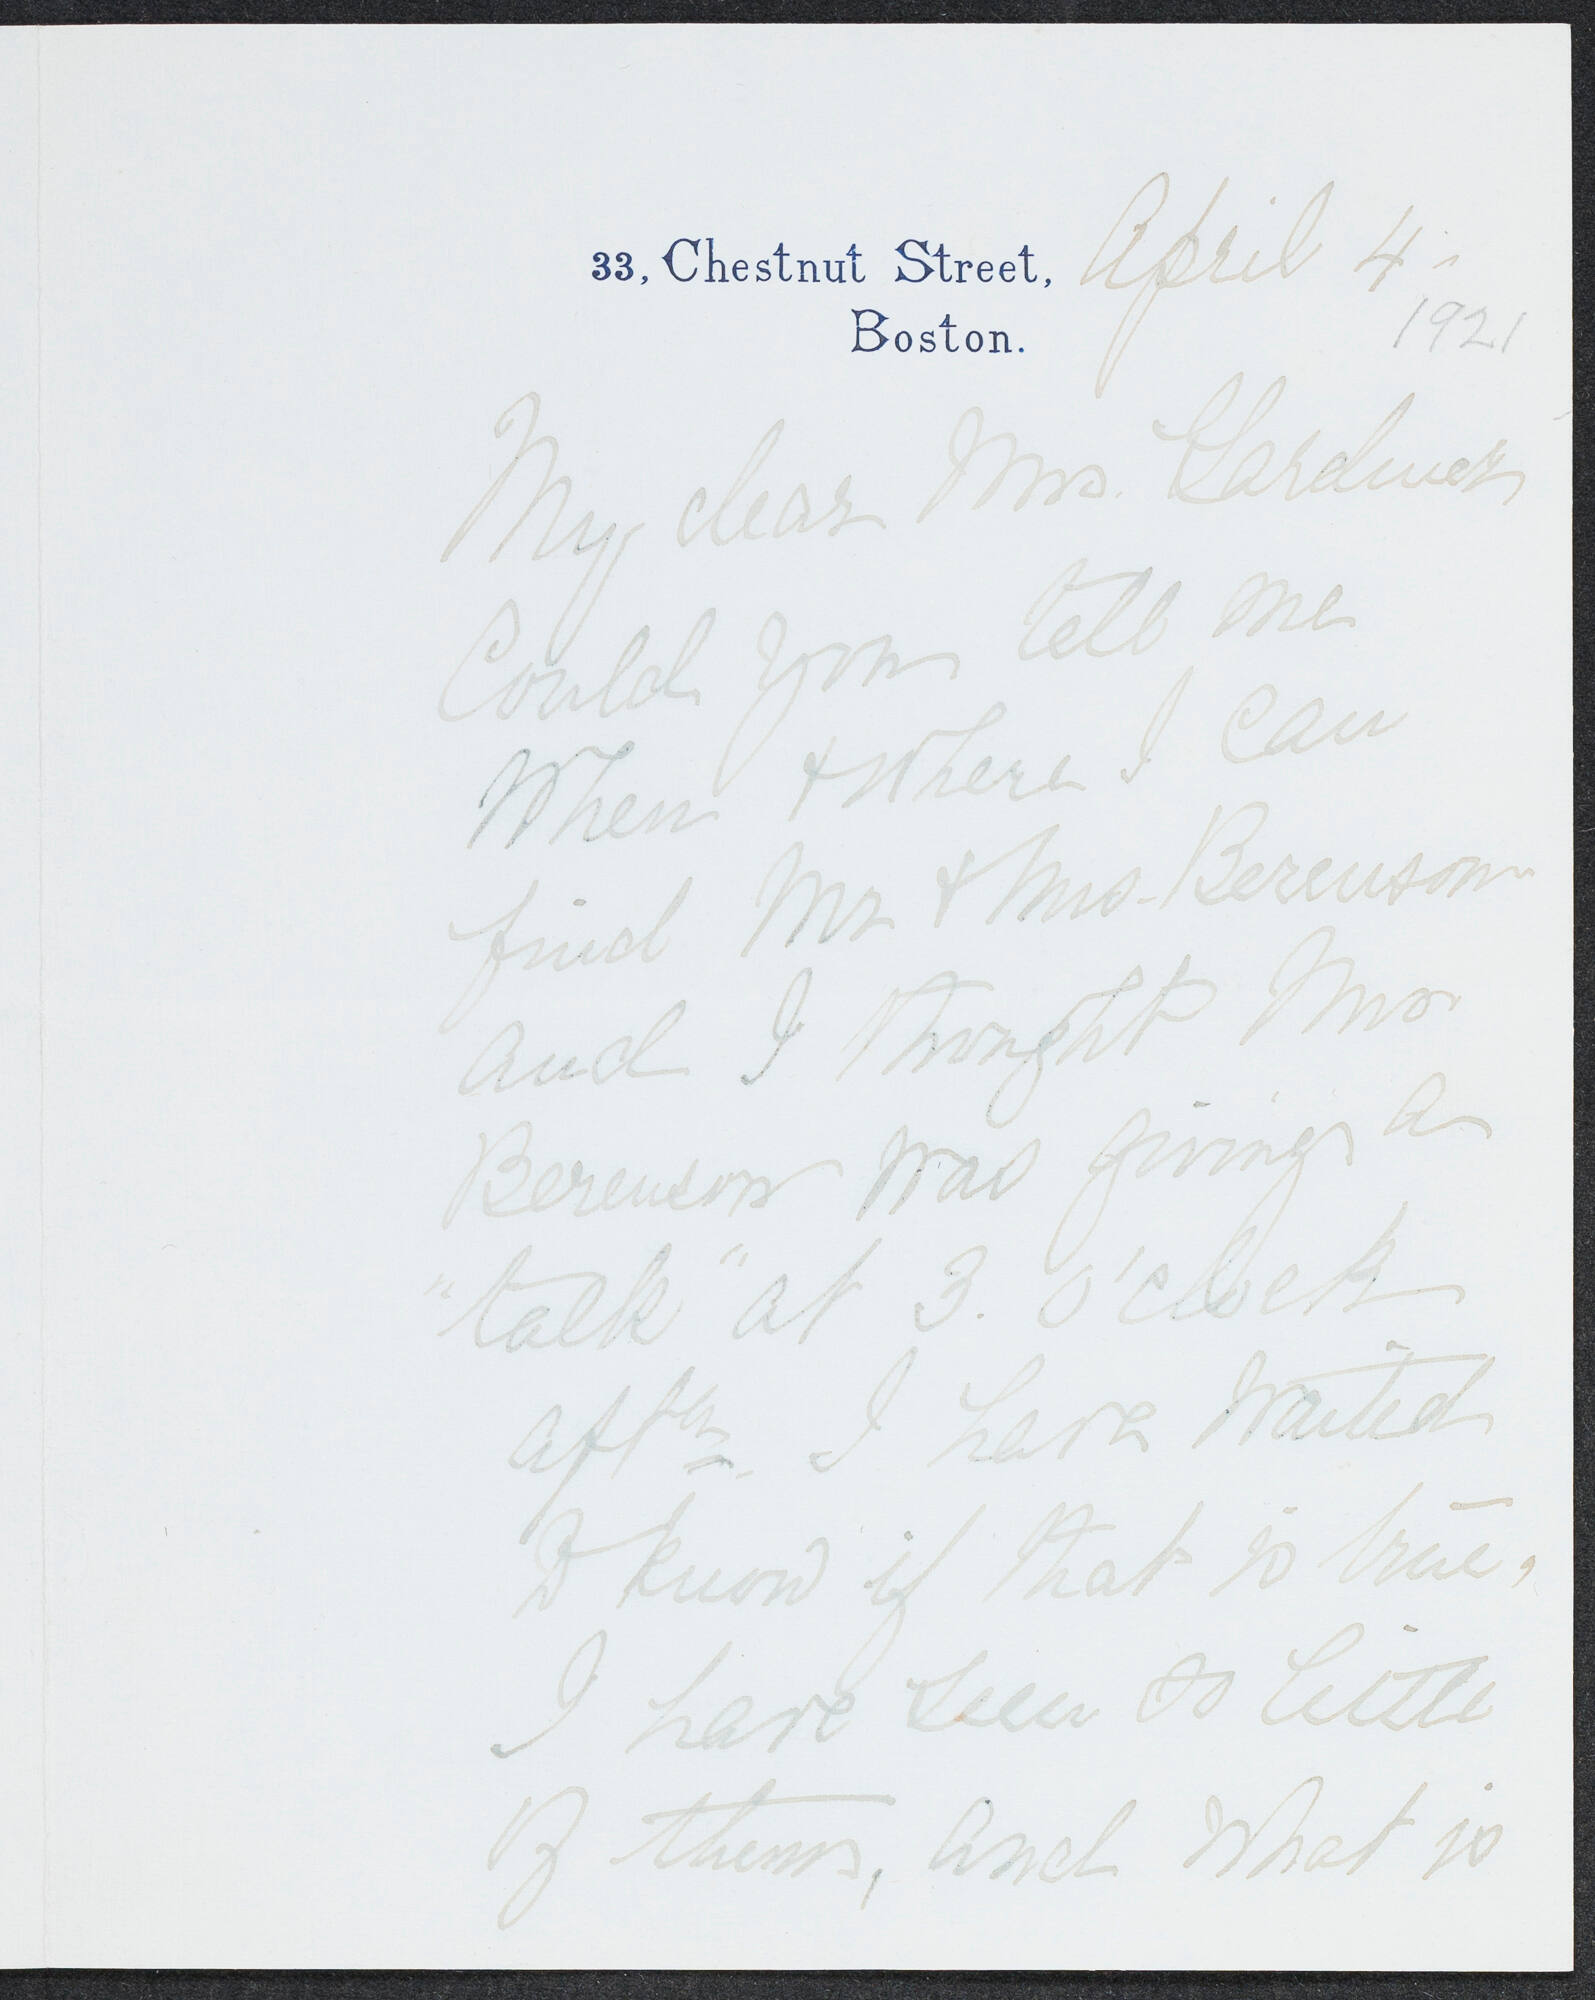 33, Chestnut Street, April 4 -
Boston. 1921
My dear Mrs. Gardner
Could you tell me
when & where I can
find Mr & Mrs. Berenson
and I thought Mrs
Berenson was giving a
"talk" at 3. o'clock
aftn. I have waited
to know if that is true,
I have seen so little
of them, and what is